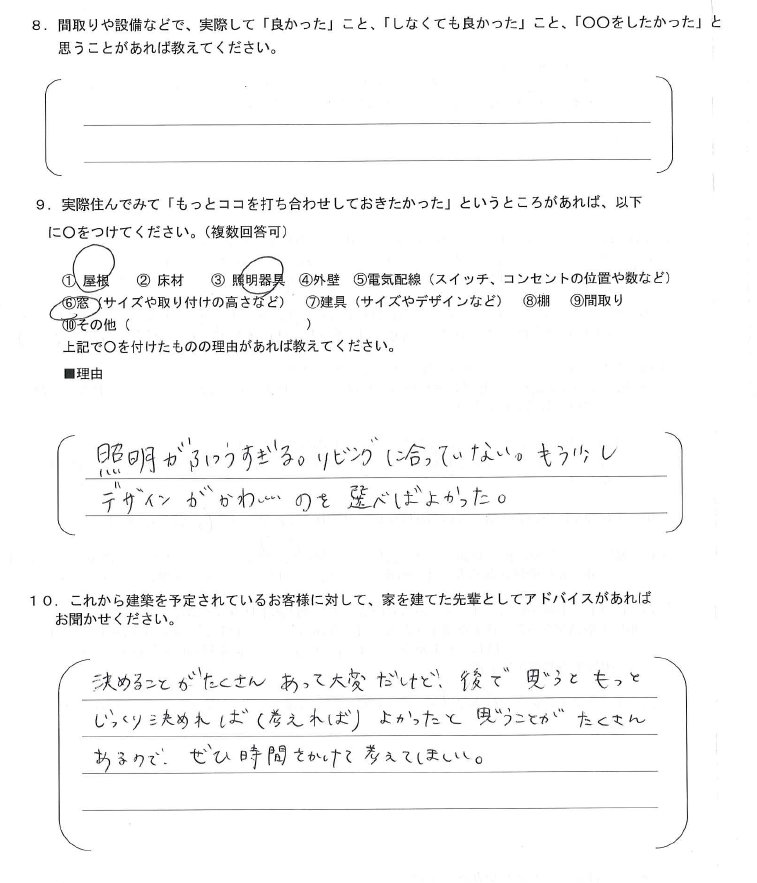 ８．間取りや設備などで、実際して「良かった」こと、「しなくても良かった」こと、「〇〇をしたかった」と
思うことがあれば教えてください。
９．実際住んでみて「もっとココを打ち合わせしておきたかった」というところがあれば、以下
に〇をつけてください。（複数回答可）
①屋根　②床材　③照明器具　④外壁　⑤電気配線（スイッチ、コンセントの位置や数など）
⑥窓（サイズや取り付けの高さなど）　⑦建具（サイズやデザインなど）　⑧棚　⑨間取り
⑩その他（　　　　　　　　　　　　）
上記で〇を付けたものの理由があれば教えてください。
■理由
照明がふつうすぎる。リビングに合っていない。もう少し
デザインがかわいいのを選べばよかった。
１０．これから建築を予定されているお客様に対して、家を建てた先輩としてアドバイスがあれば
お聞かせください。
決めることがたくさんあって大変だけど、後で思うともっと
じっくり決めれば（考えれば）よかったと思うことがたくさん
あるので、ぜひ時間をかけて考えてほしい。